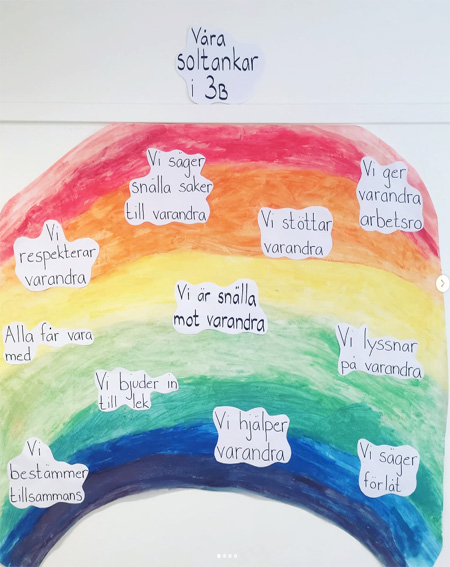 Våra
soltankar
i 3B
Vi säger
snälla saker
till varandra
Vi ger
varandra
arbetsro
Vi stöttar
varandra
Vi
respekterar
varandra
Vi är snälla
mot varandra
Alla får vara
med
Vi lyssnar
på varandra
Vi bjuder in
till lek
Vi hjälper
varandra
Vi
bestämmer
tillsammans
Vi säger
förlåt